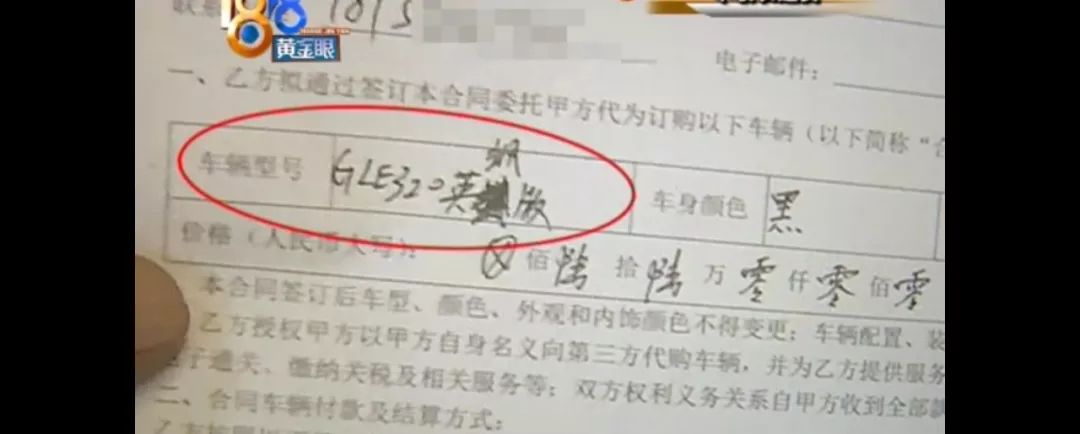 1818
黄金眼
电子邮件：
一、乙方拟通过签订本合同委托甲方代为订购以下车辆（以下简称“合
车辆型号 GLE320英 版 车身颜色 黑
价格（人民币大写）： 佰陆拾陆万零仟零佰零
本合同签订后车型、颜色、外观和内饰颜色不得变更；车辆配置、装
乙方授权甲方以甲方自身名义向第三方代购车辆，并为乙方提供服务
于通关、缴纳关税及相关服务等；双方权利义务关系自甲方收到全部
二、合同车辆付款及结算方式：